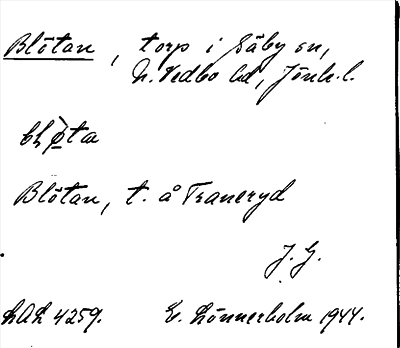 Blötan, torp i Säby sn,
N. Vedbo hd, Jönk. l.
Blötan, t. å Traneryd
J. G.
LAL 4259. E. Lönnerholm 1944.